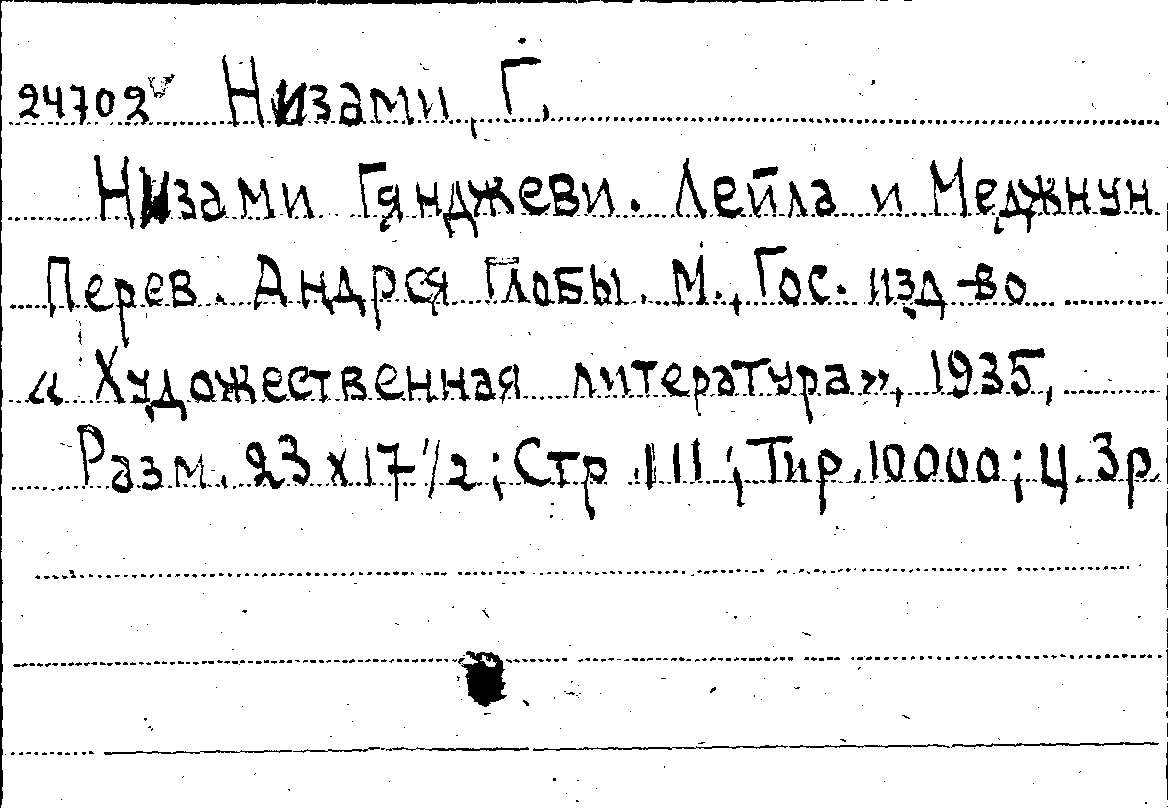 24702 Низами, Г.
Низами Гянджеви. Лейла и Меджнун
Перев. Андрея Глобы. М., Гос. изд-во
«Художественная литература», 1935,
Разм. 23х17 1/2; Стр. 111; Тир. 10000; Ц. 3р.